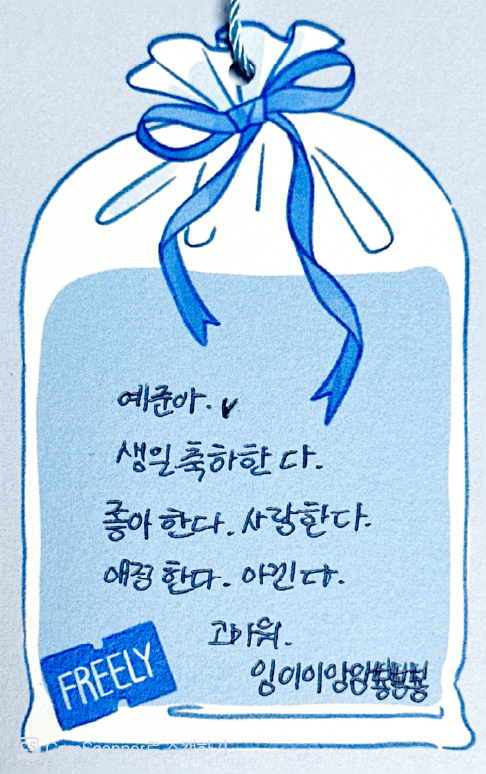 예준아.
생일축하한다.
좋아한다. 사랑한다.
애정한다. 아낀다.
고마워.
잉이이앙앙
FREELY
CS CamScanner로 스캔하기